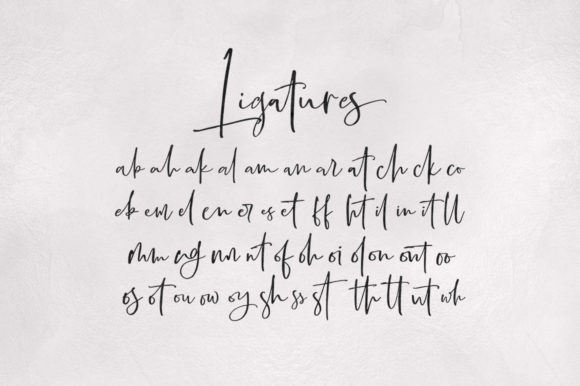 Ligatures
ab ah ak al am an ar at ch ck co
ek em el en er es et ff ht il in it ll
mm ng nn nt of oh oi ol on out oo
os ot ou ow oy sh ss st th tt ut wh